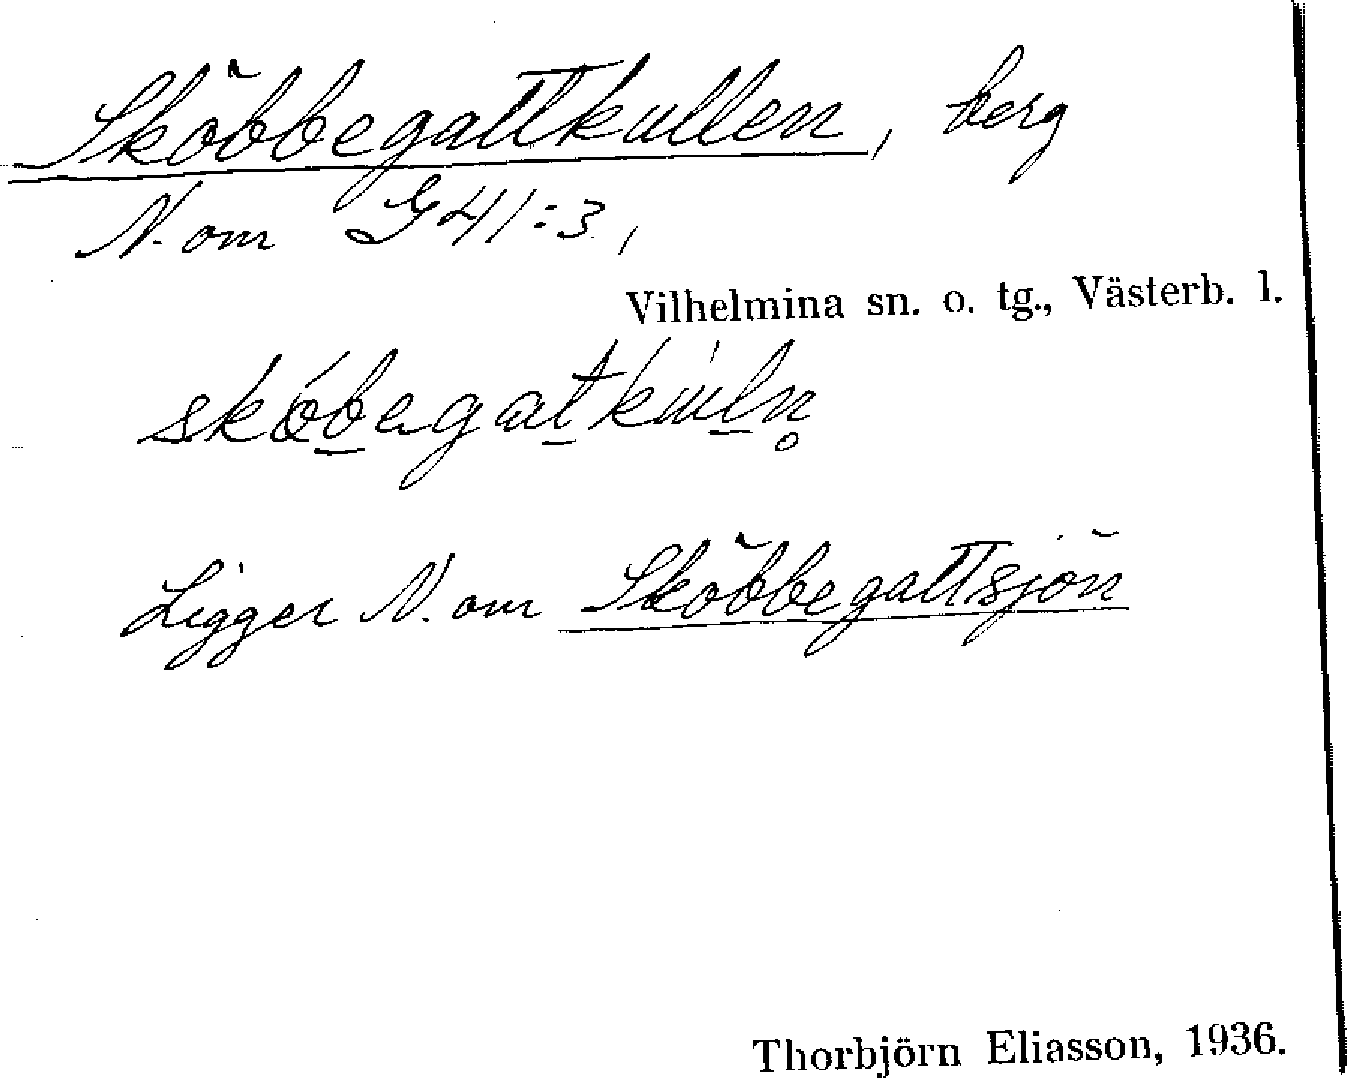 Sköbbegattkullen, berg
N. om G 41:3,
Vilhelmina sn. o. tg., Västerb. l.
Ligger N. om Sköbbegattsjön
Thorbjörn Eliasson, 1936.